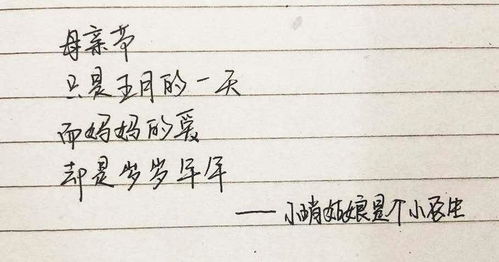 母亲节
只是五月的一天
而妈妈的爱
却是岁岁年年
——小晴姑娘是个小医生